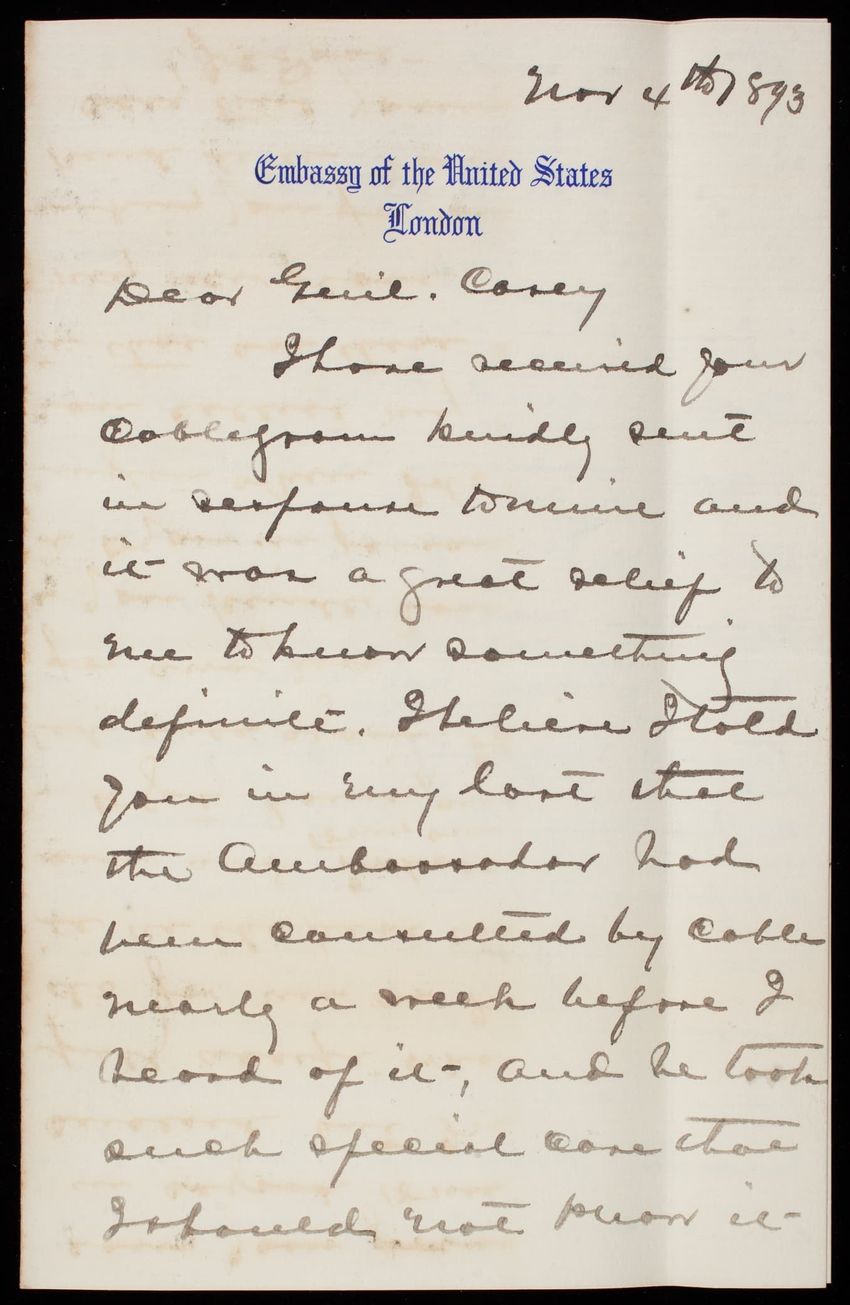 Nov 4th 1893
Embassy of the United States
London
Dear Genl. Casey
I have received your
Cablegram kindly sent
in response to mine and
it was a great relief to
me to know something
definite. I believe I told
you in my last that
the Ambassador had
been consulted by Cable
nearly a week before I
heard of it, and he took
such special care that
I should not know it